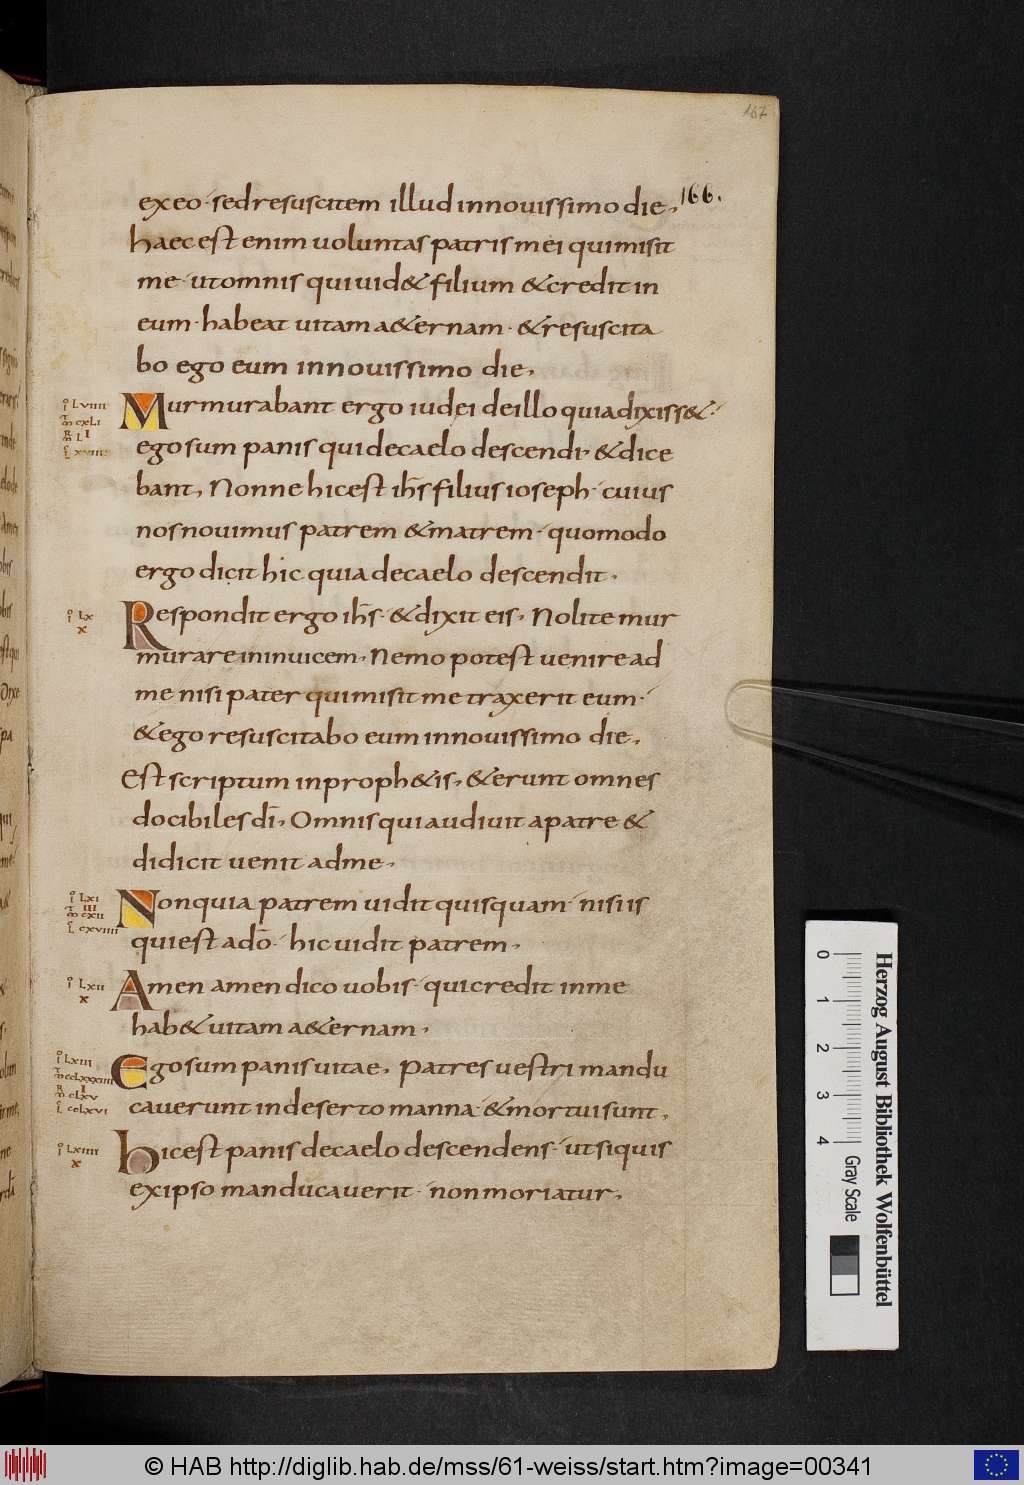 167
166.
exeo· sed resuscitem illud in nouissimo die,
haec est enim uoluntas patris mei qui misit
me· ut omnis qui uid& filium & credit in
eum· habeat uitam a&ernam· & resuscita
bo ego eum in nouissimo die,
Murmurabant ergo iudei de illo quia dixiss&·
ego sum panis qui de caelo descendi, & dice
bant, Nonne hic est ih̅s filius ioseph· cuius
nos nouimus patrem & matrem· quomodo
ergo dicit hic quia de caelo descendit·
Respondit ergo ih̅s· & dixit eis, Nolite mur
murare in inuicem, Nemo potest uenire ad
me nisi pater qui misit me traxerit eum·
& ego resuscitabo eum in nouissimo die,
Est scriptum in proph&is, & erunt omnes
docibiles di̅, Omnis qui audiuit a patre &
didicit uenit ad me,
Non quia patrem uidit quisquam· nisi is
qui est a do̅· hic uidit patrem,
Amen amen dico uobis· qui credit in me
hab& uitam a&ernam,
Ego sum panis uitae, Patres uestri mandu
cauerunt in deserto manna· & mortui sunt,
hic est panis de caelo descendens· ut si quis
ex ipso manducauerit· non moriatur,
0 1 2 3 4 Gray Scale
Herzog August Bibliothek Wolfenbüttel
© HAB http://diglib.hab.de/mss/61-weiss/start.htm?image=00341